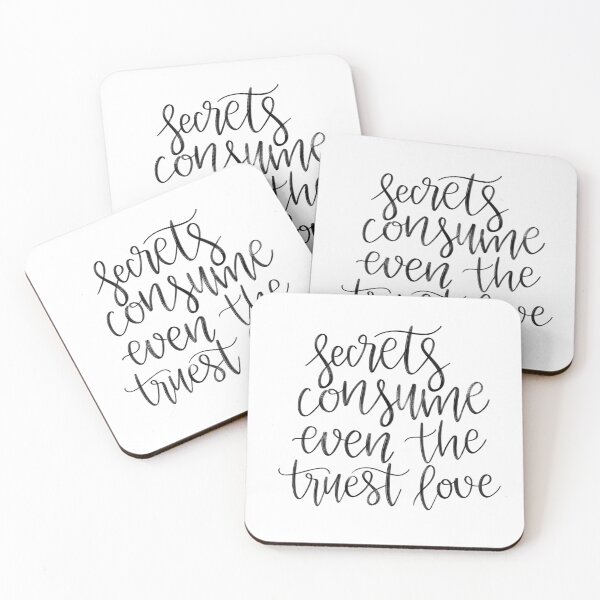 secrets
consume
the
secrets
consume
even the
truest love
secrets
consume
even the
truest
secrets
consume
even the
truest love